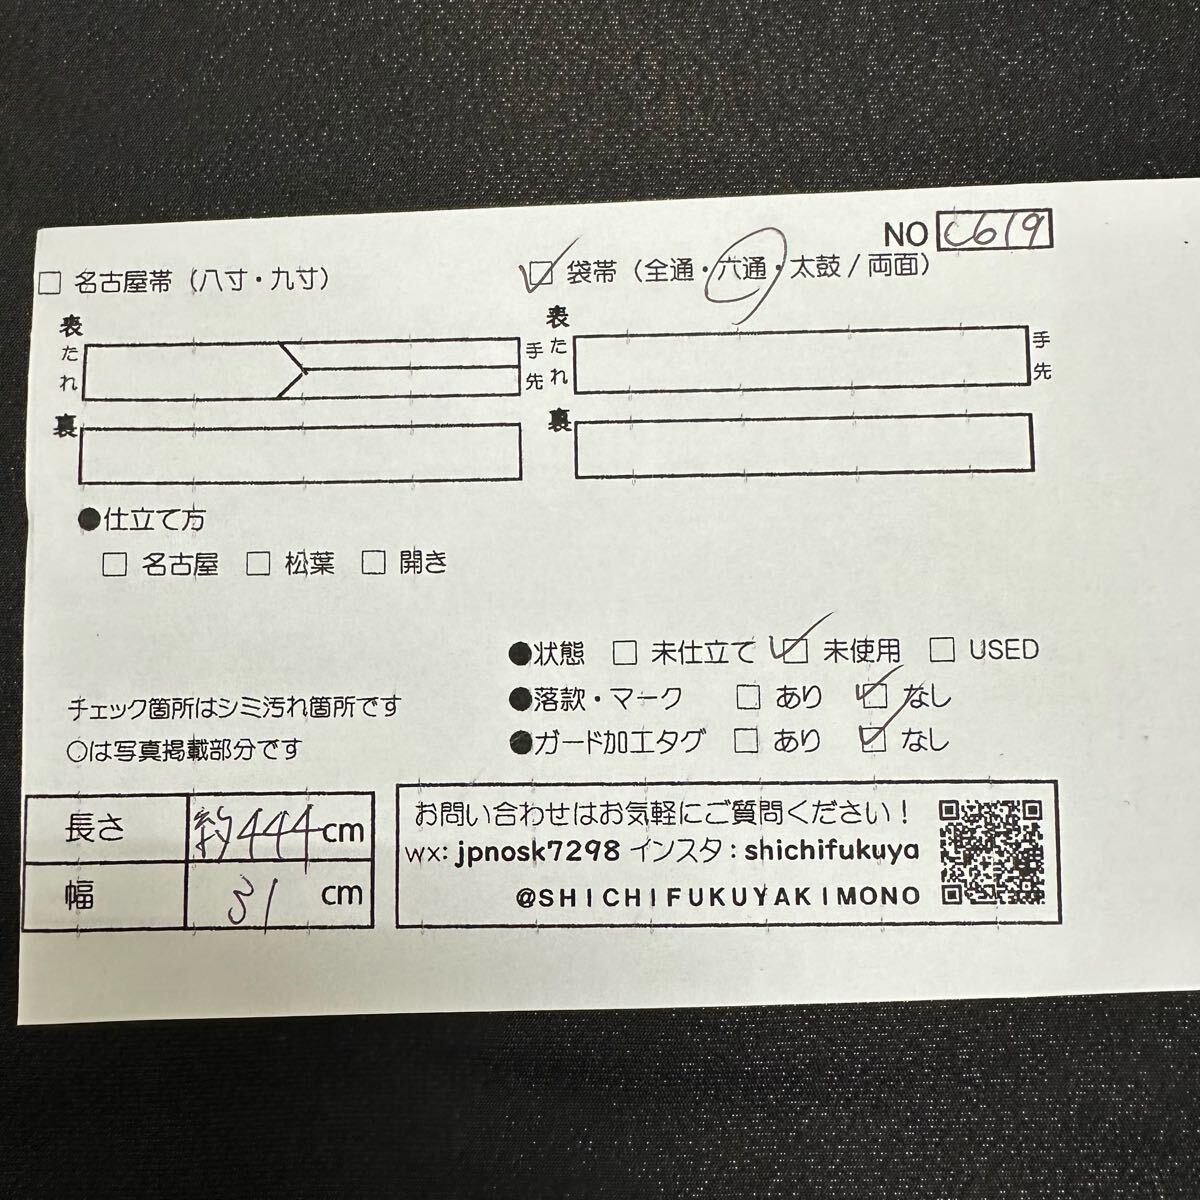 NO C619
□ 名古屋帯（八寸・九寸）
☑ 袋帯（全通・六通・太鼓/両面）
表
たれ
手先
裏
表
たれ
手先
裏
●仕立て方
□ 名古屋 □ 松葉 □ 開き
●状態 □ 未仕立て ☑ 未使用 □ USED
●落款・マーク □ あり ☑ なし
●ガード加工タグ □ あり ☑ なし
チェック箇所はシミ汚れ箇所です
○は写真掲載部分です
長さ 約444cm
幅 31 cm
お問い合わせはお気軽にご質問ください！
wx: jpnosk7298 インスタ：shichifukuya
@SHICHIFUKUYAKIMONO